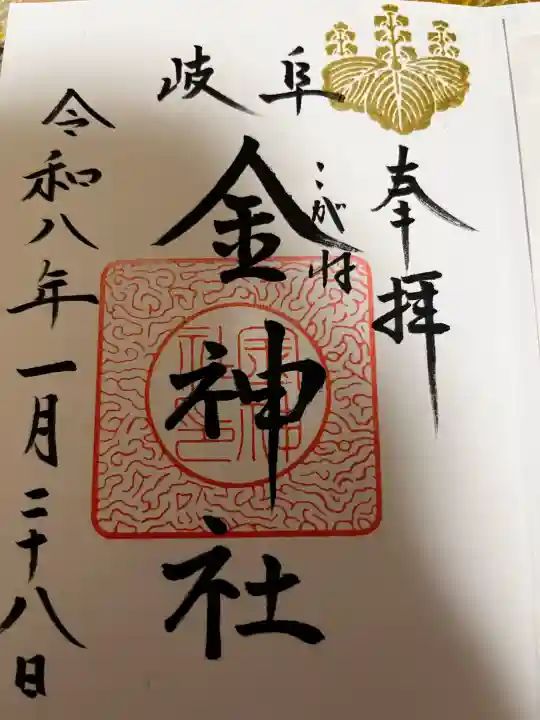 奉拝
岐阜
こがね
金神社
令和八年一月二十八日